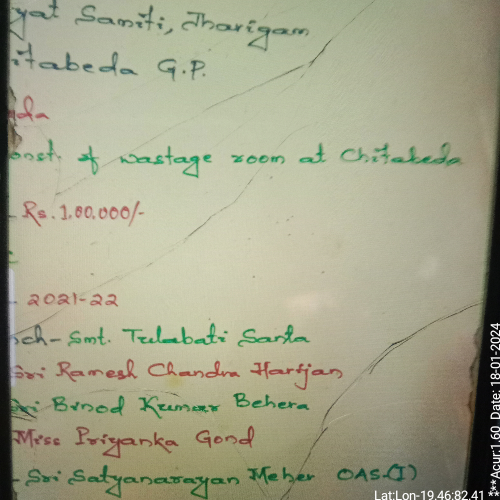 yat Samiti, Jharigam
itabeda G.P.
da
onst. of wastage room at Chitabeda
- Rs. 1,00,000/-
- 2021-22
ch- Smt. Tulabati Santa
Sri Ramesh Chandra Harijan
Sri Binod Kumar Behera
Miss Priyanka Gond
- Sri Satyanarayan Meher OAS-(I)
Lat:Lon-19.46:82.41
** Acur:1.60 Date: 18-01-2024